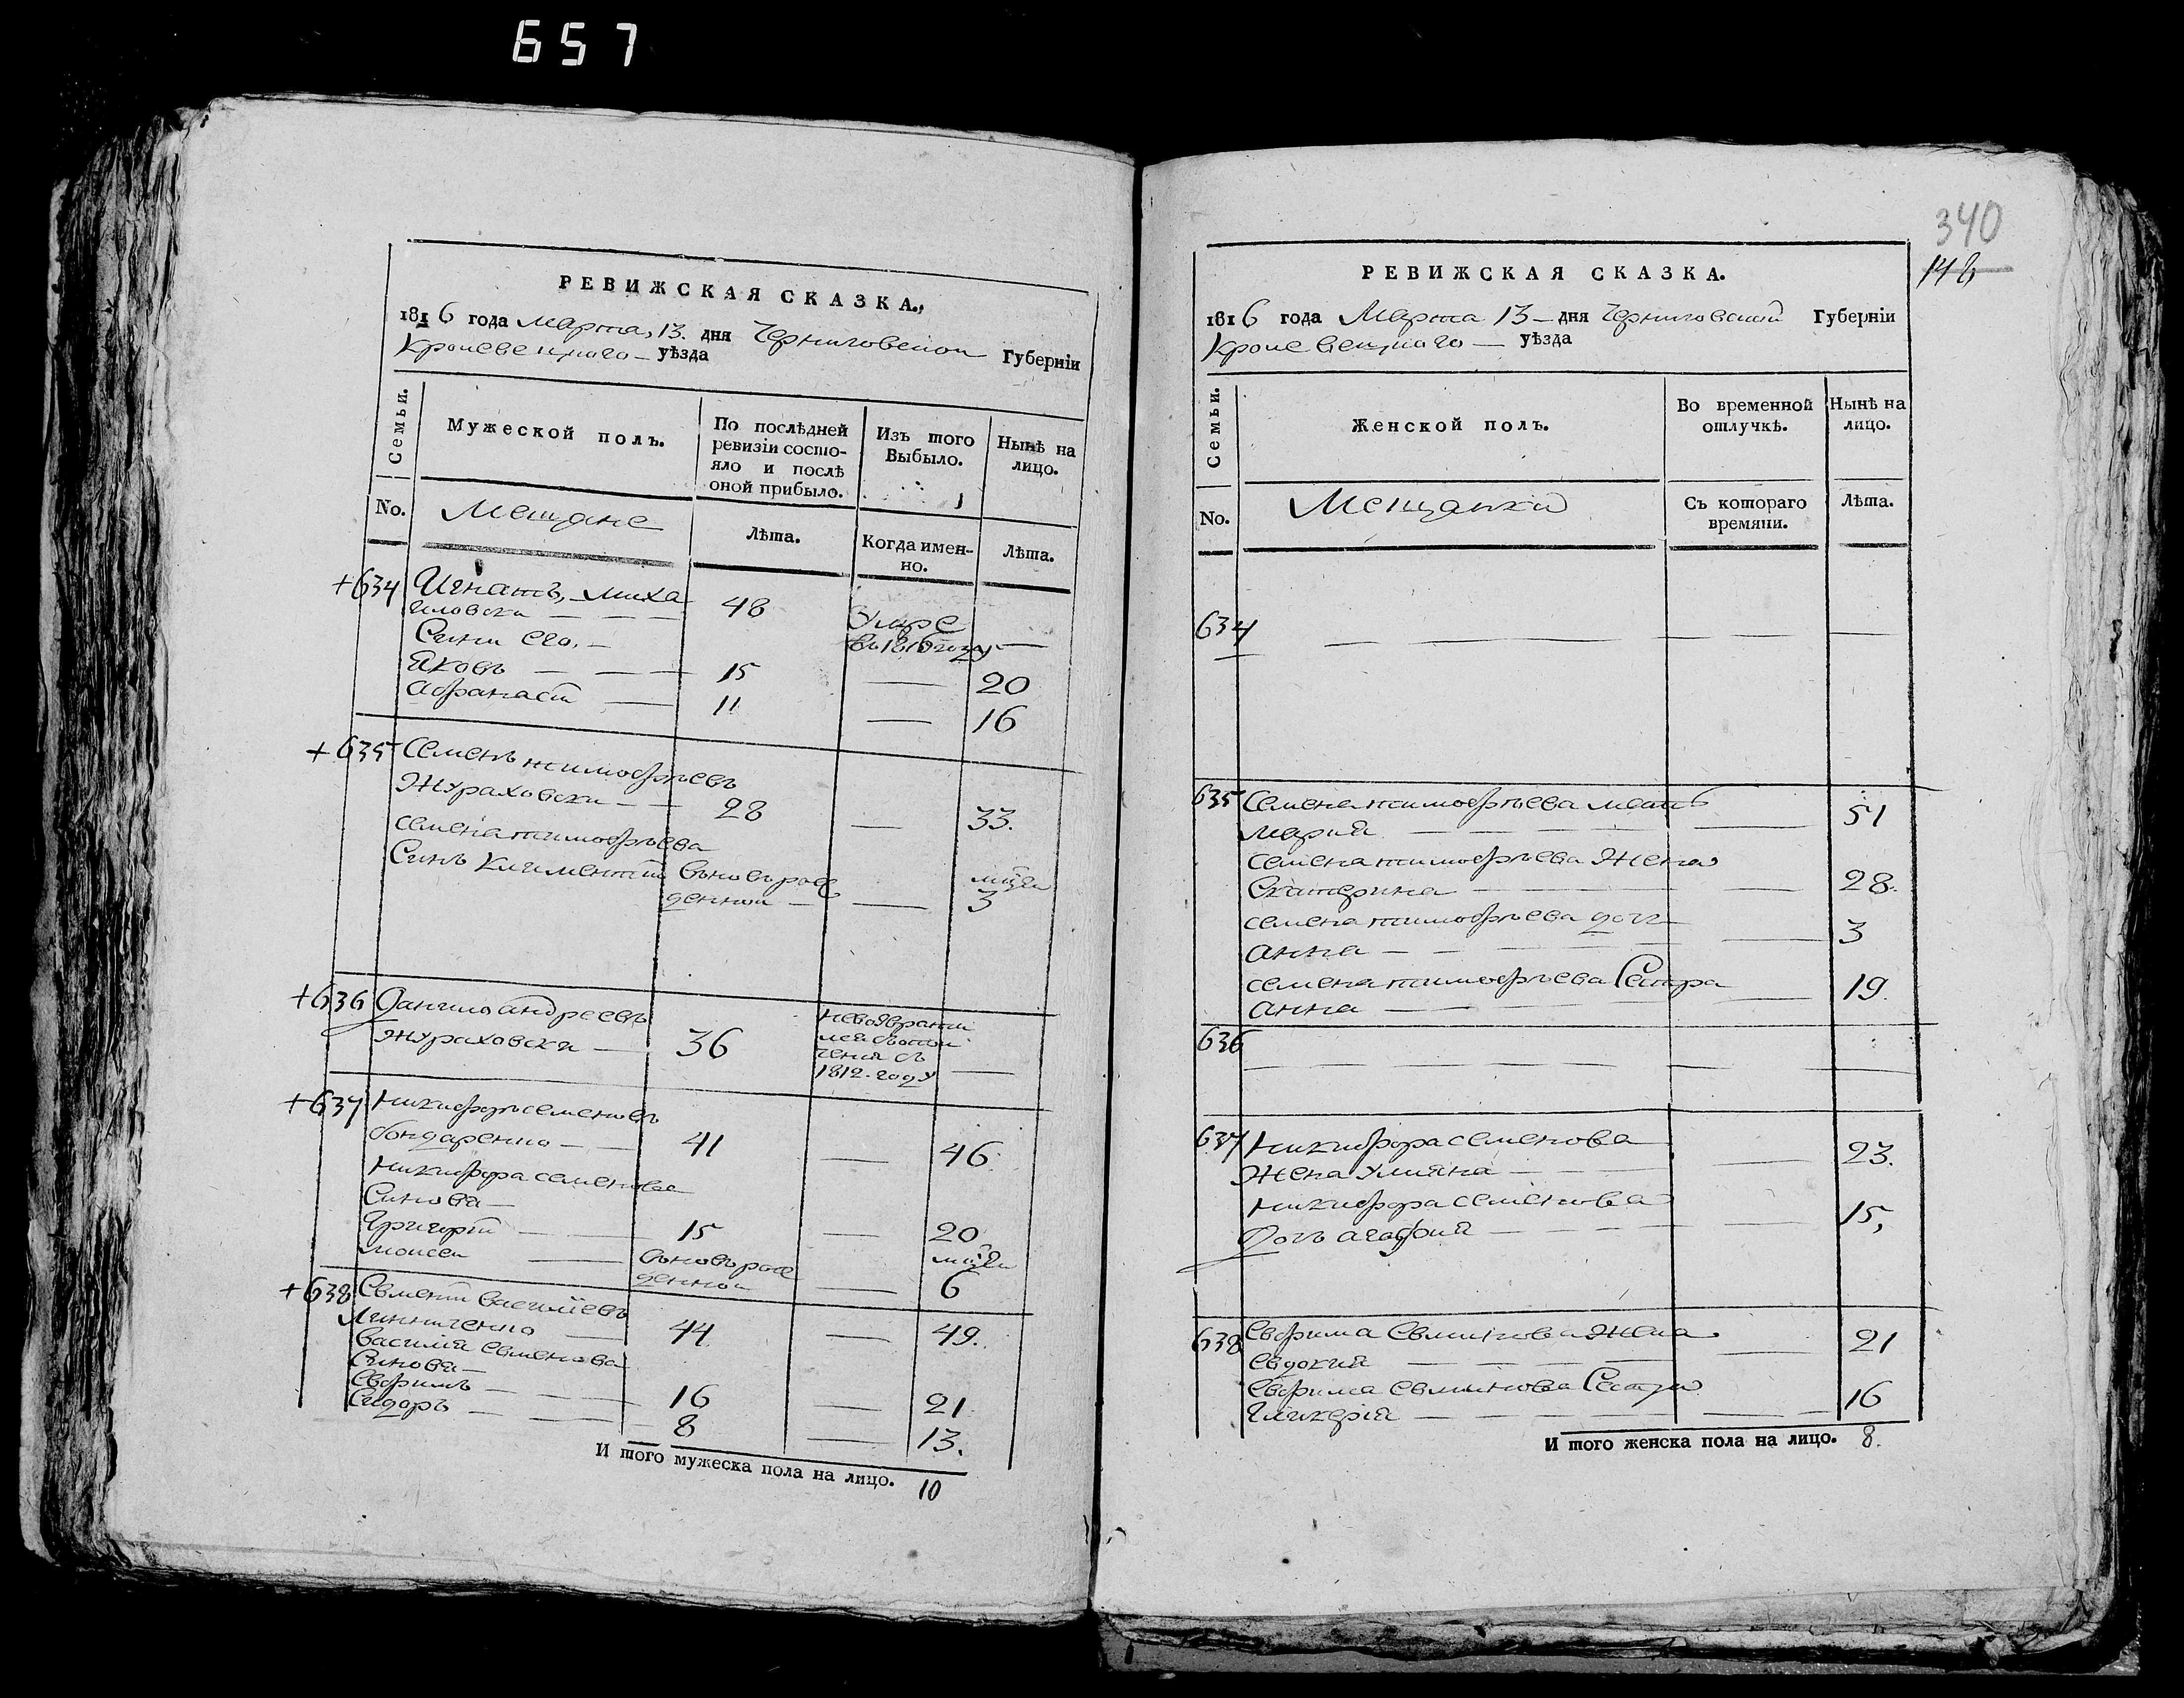 657
РЕВИЖСКАЯ СКАЗКА.
1816 года Марта, 13. дня Черниговской Губерніи
Кролевецкого уѣзда
Семьи.
Мужеской полъ.
По послѣдней ревизіи состояло и послѣ оной прибыло.
Изъ того Выбыло.
Нынѣ на лицо.
No.
Мещане
Лѣта.
Когда именно.
Лѣта.
+634 Игнатъ, Миха
48 Умре
Сини его.
в 1816 году —
Яковъ — 15 — 20
Афанасій — 11 — 16
+635 Семенъ тимофѣевъ
Жураховски — 28 — 33.
семена тимофѣева
Синъ Климентій вновь рож
денной — — 3
+636 Данило андреевъ
жураховски — 36
1812. году —
+637 Никифоръ семеновъ
бондаренко — 41 — 46.
Никифора семенова
Синовя —
Григорій — 15 — 20
моисей — вновь рож
денной — 6
+638 василіевъ
44 — 49.
василія
Синовя —
Евфимъ — 16 — 21
Сидоръ — 8 — 13.
И того мужеска пола на лицо. 10
340
148
РЕВИЖСКАЯ СКАЗКА.
1816 года Марта 13 — дня Черниговской Губерніи
Кролевецкого — уѣзда
Семьи.
Женской полъ.
Во временной отлучкѣ.
Нынѣ на лицо.
No.
Мещанки
Съ котораго времяни.
Лѣта.
634 — — — —
635 Семена тимофѣева мать
Марія — — 51
семена тимофѣева Жена
Екатерина — — 28.
семена тимофѣева доч
анна — — 3
семена тимофѣева Сестра
анна — — 19.
636 — — — —
637 Никифора семенова
Жена Улияна — — 23.
никифора семенова
Дочь агафия — — 15,
638 Евфима Жена
евдокия — — 21
Евфима Сестра
Гликерія — — 16
И того женска пола на лицо. 8.